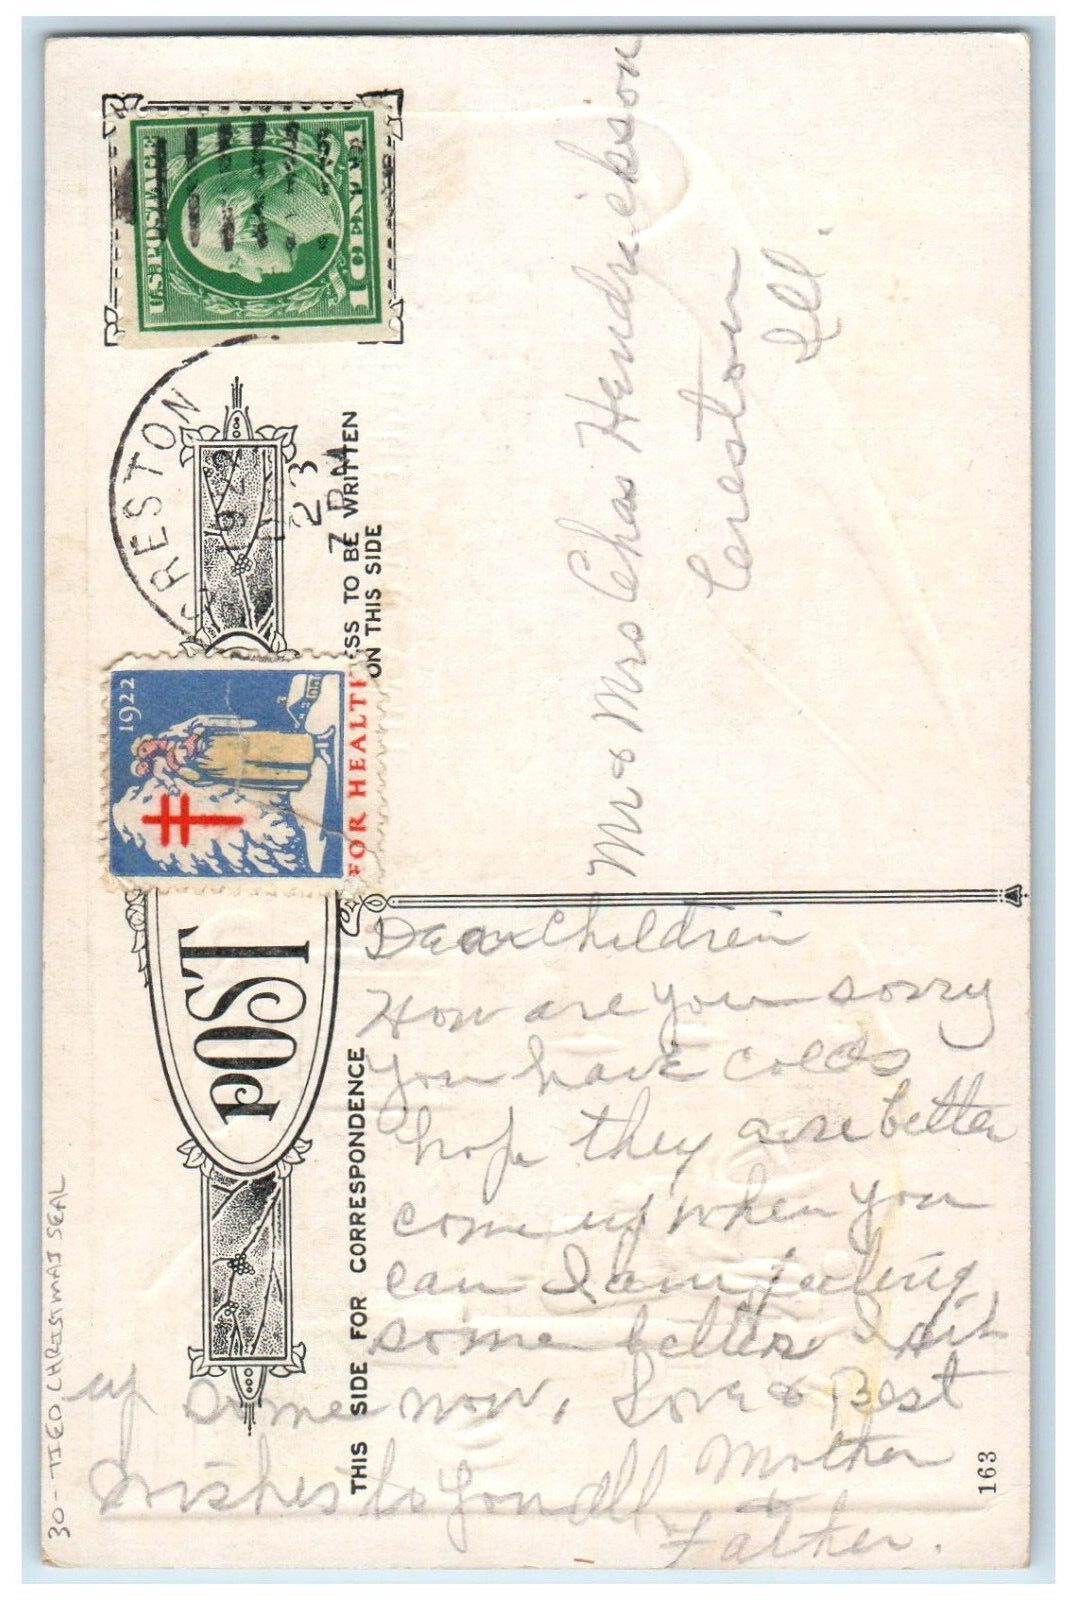 U.S. POSTAGE
1 CENT 1
CRESTON
1922
23
7 PM
1922
FOR HEALTH
POST
SS TO BE WRITTEN
ON THIS SIDE
THIS SIDE FOR CORRESPONDENCE
Mr & Mrs Chas Hendrickson
Creston
Ill.
Dear Children
How are you sorry
you have colds
hope they are better
come up when you
can I am feeling
some better I sit
up some now, Love & Best
wishes to you all Mother
& Father.
163
30 - TIED CHRISTMAS SEAL